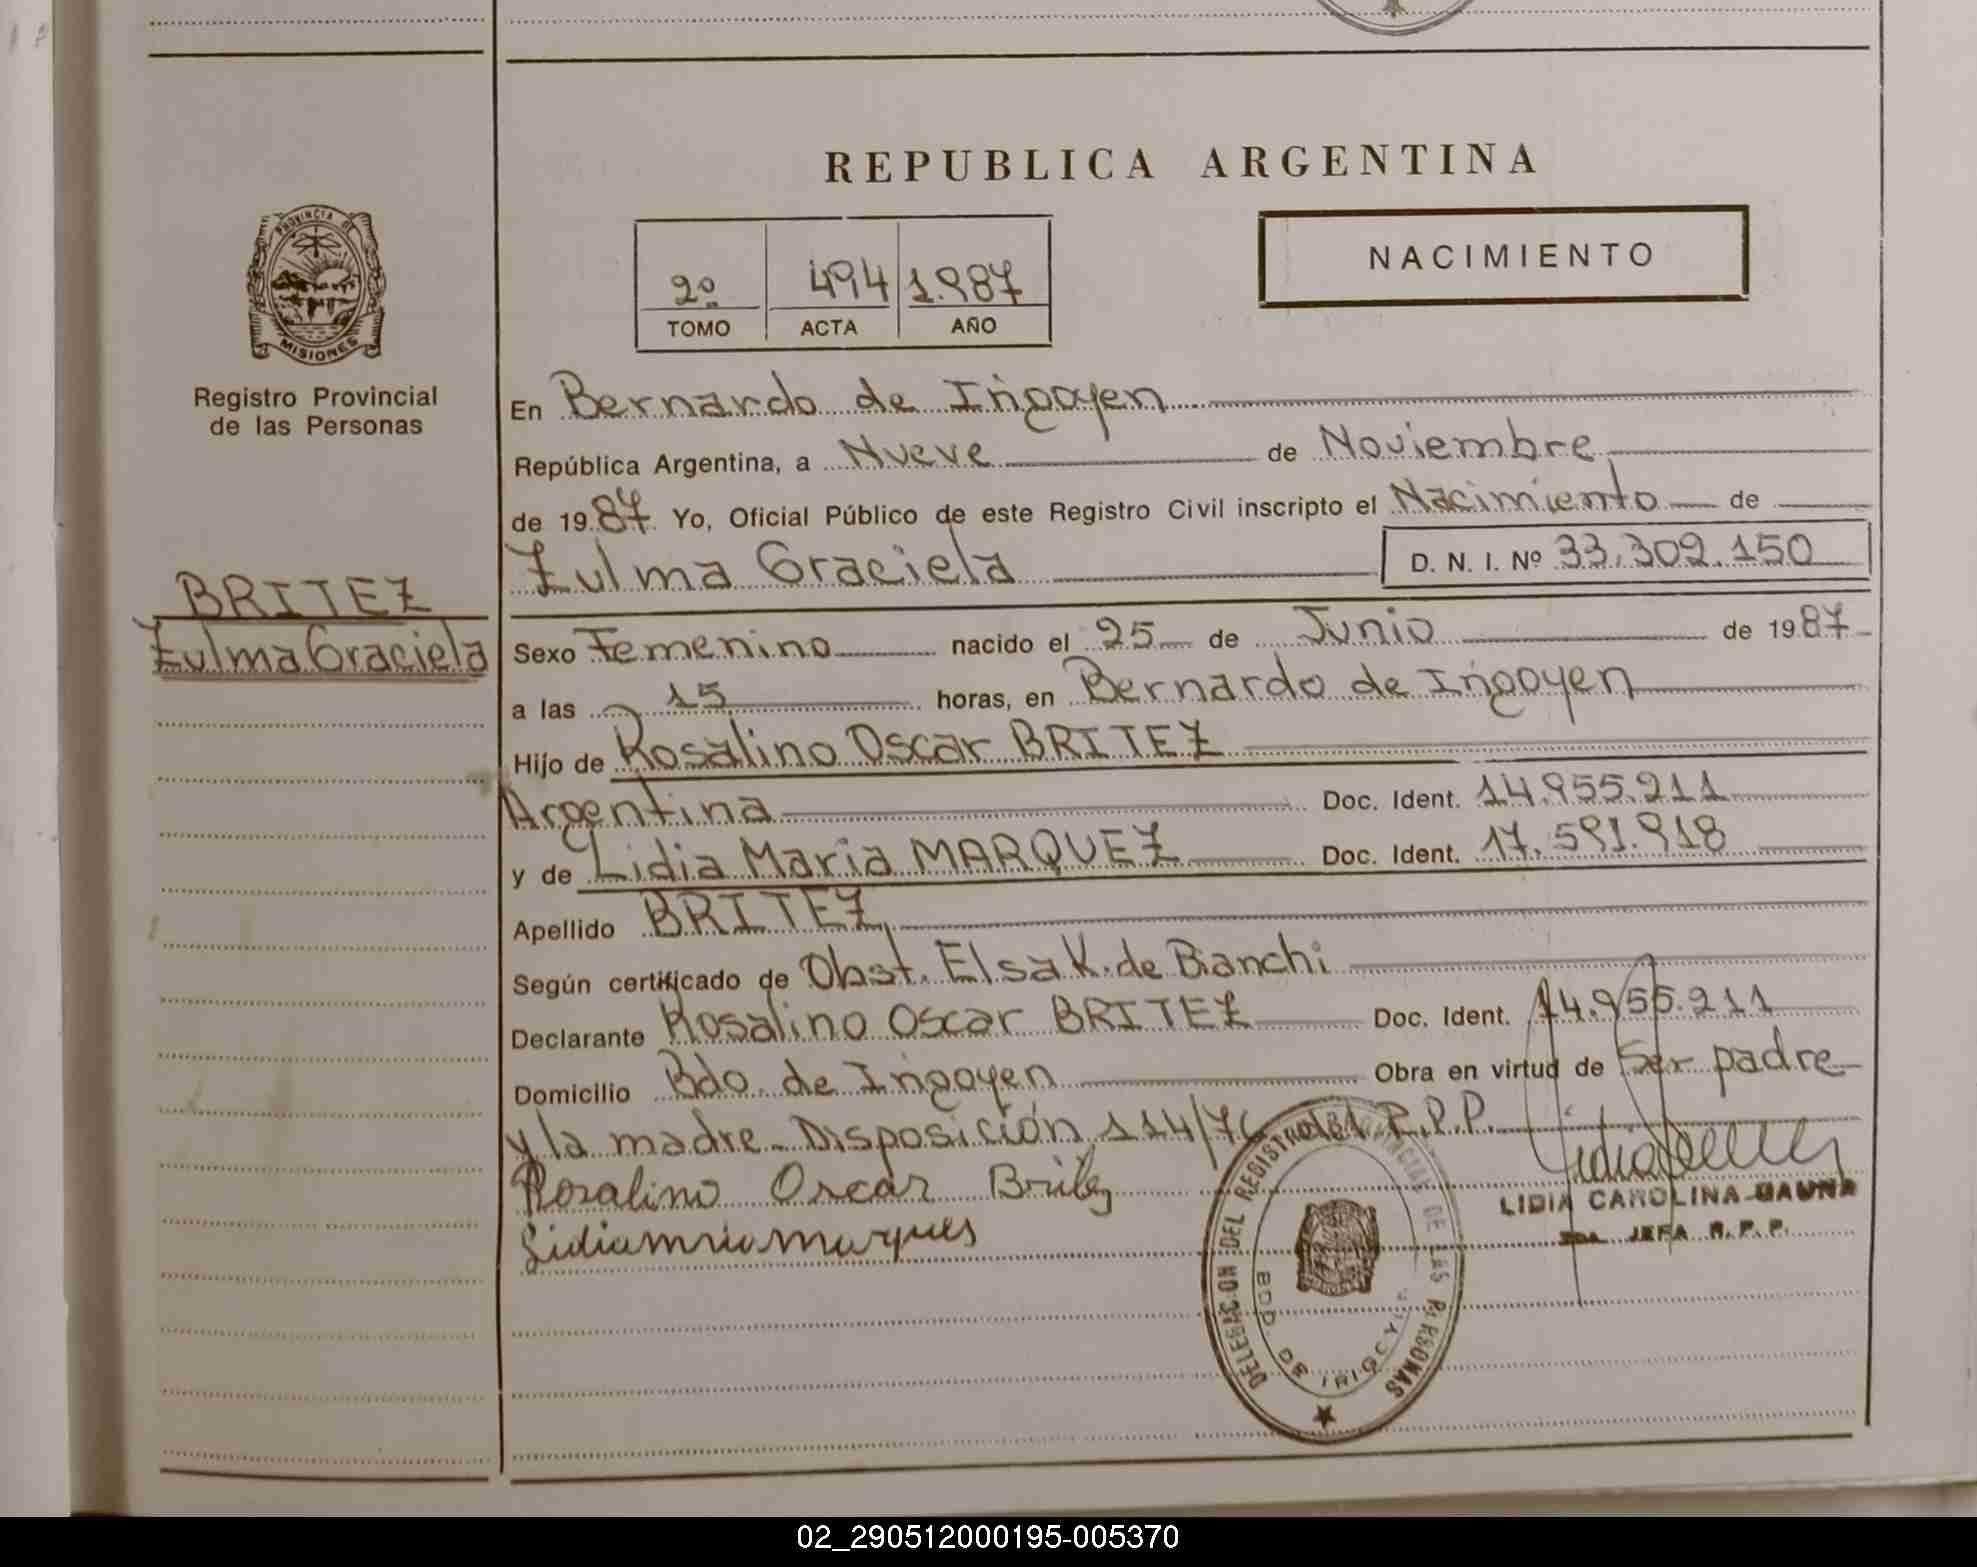 REPUBLICA ARGENTINA
PROVINCIA DE
MISIONES
Registro Provincial
de las Personas
2º 494 1.987
TOMO ACTA AÑO
NACIMIENTO
En Bernardo de Irigoyen
República Argentina, a Nueve de Noviembre
de 1987 Yo, Oficial Público de este Registro Civil inscripto el Nacimiento de
Zulma Graciela D. N. I. Nº 33.302.150
BRITEZ
Zulma Graciela
Sexo Femenino nacido el 25 de Junio de 1987
a las 15 horas, en Bernardo de Irigoyen
Hijo de Rosalino Oscar BRITEZ
Argentina Doc. Ident. 14.955.211
y de Lidia Maria MARQUEZ Doc. Ident. 17.591.918
Apellido BRITEZ
Según certificado de Obst. Elsa K. de Bianchi
Declarante Rosalino Oscar BRITEZ Doc. Ident. 14.955.211
Domicilio Bdo. de Irigoyen Obra en virtud de Ser padre
y la madre. Disposición 114/76 del R.P.P.
Rosalino Oscar Britez
Lidia maria marques
LIDIA CAROLINA GAUNA
JEFA R. P. P.
DELEGACION DEL REGISTRO PROVINCIAL DE LAS PERSONAS
BDO. DE IRIGOYEN
02_290512000195-005370